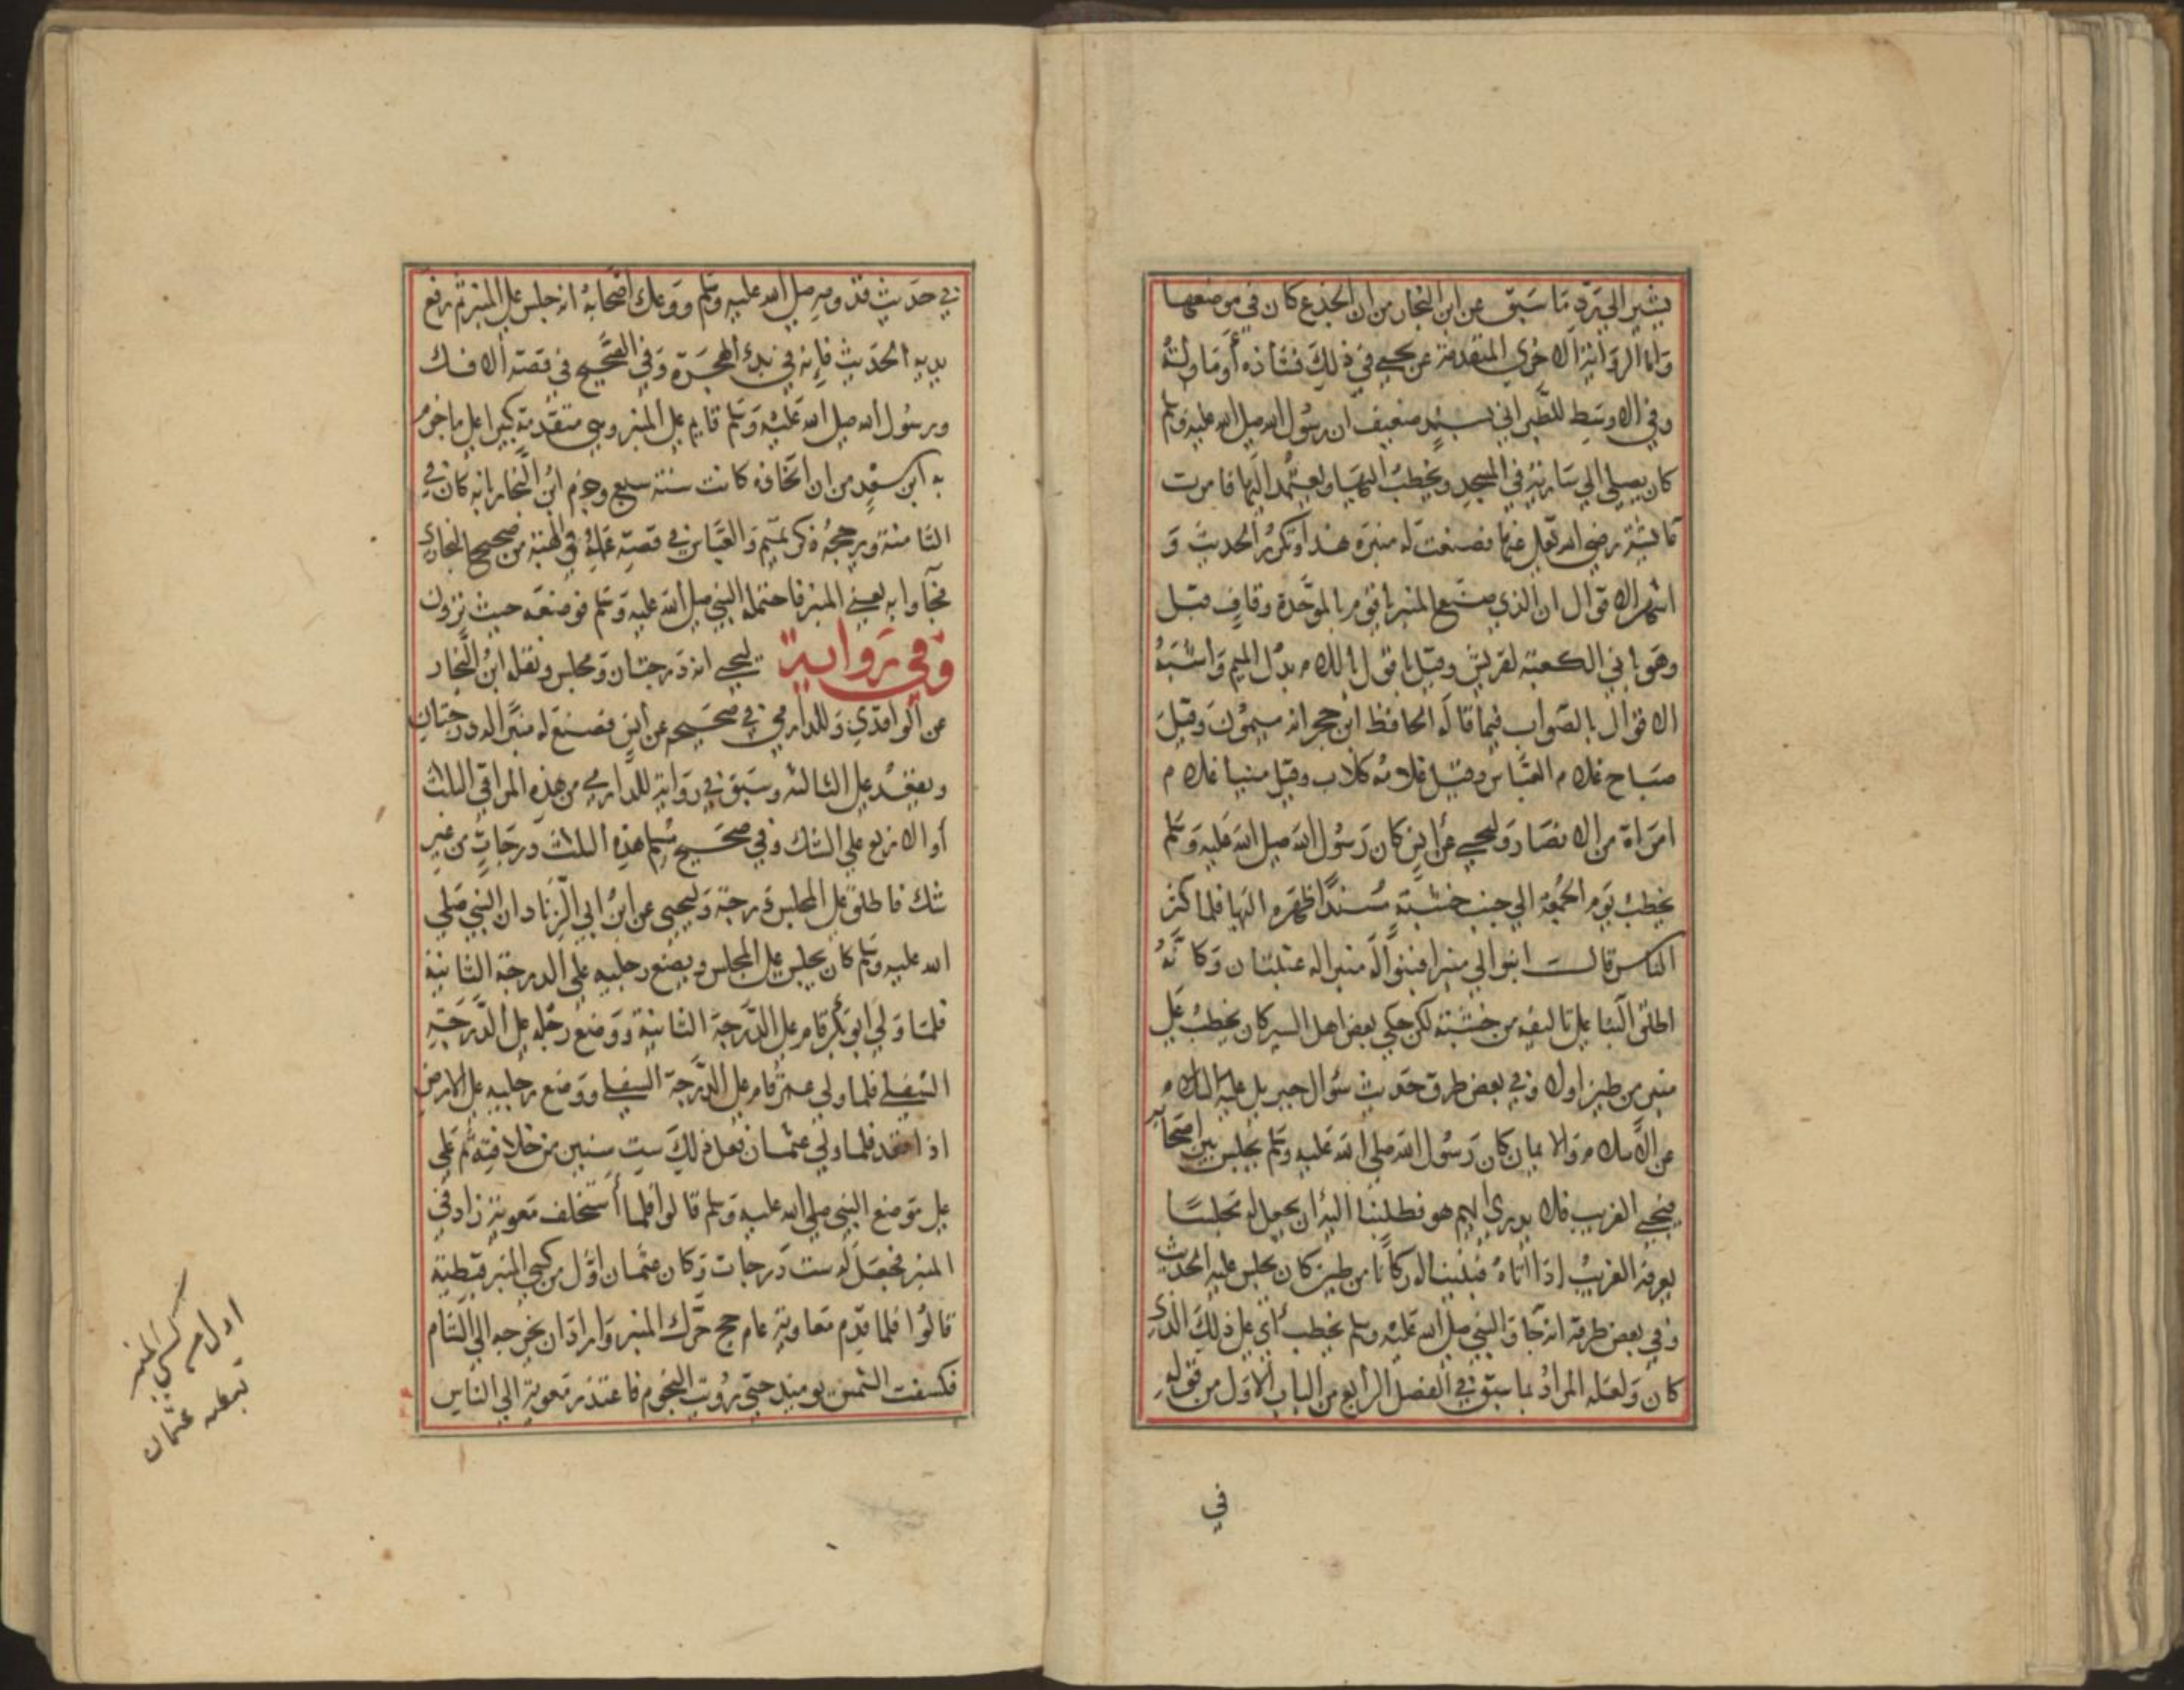 يشير الى رد ما سبق عن ابن النجار من ان الجذع كان في موضعها
واما الرواية الاخرى المتقدمة عن يحيى في ذلك فشاذة أو ماولة
وفي الاوسط للطبراني بسند ضعيف ان رسول الله صلى الله عليه وسلم
كان يصلي الى سارية في المسجد ويخطب اليها ويعتمد اليها فامرت
عائشة رضي الله تعالى عنها فصنعت له منبره هذا وتكرر الحديث و
اشهر الاقوال ان الذي صنع المنبر باقوم بالموحدة وقاف قبل
وهو باني الكعبة لقريش وقيل باقول باللام بدل الميم واشبه
الاقوال بالصواب فيما قاله الحافظ ابن حجر انه ميمون وقيل
صباح غلام العباس وقيل غلامه كلاب وقيل مينا غلام
امراة من الانصار وليحيى عن ابن كان رسول الله صلى الله عليه وسلم
يخطب يوم الجمعة الى جنب خشبة مسندا ظهره اليها فلما كثر
الناس قال ابنوا لي منبرا فبنوا له منبرا له عتبتان وكانه
اطلق البنا على تاليفه من خشبته لكن حكى بعض اهل السير كان يخطب على
منبر من طين اولا وفي بعض طرق حديث سؤال جبريل عليه السلام
عن الاسلام والايمان كان رسول الله صلى الله عليه وسلم يجلس بين اصحابه
فيجي الغريب فلا يدري ايهم هو فطلبنا اليه ان يجعل له مجلسا
يعرفه الغريب إذا اتاه فبنينا له دكانا من طين كان يجلس عليه الحديث
وفي بعض طرقه انه جا والنبي صلى الله عليه وسلم يخطب أي على ذلك الذي
كان ولعله المراد بما سبق في الفصل الرابع من الباب الاول من قوله
في
في حديث قدومه صلى الله عليه وسلم ووعك اصحابه انه جلس على المنبر ثم رفع
يديه الحديث فإنه في بدء الهجرة وفي الصحيح في قصة الافك
ورسول الله صلى الله عليه وسلم قايم على المنبر وهي متقدمة كثيرا على ما جزم
به ابن سعد من ان اتخاذه كانت سنة سبع وجزم ابن النجار بانه كان في
الثامنة ويرجحه ذكر تميم والعباس في قصة عمله في الهبة من صحيح البخاري
فجآوا به يعني المنبر فاحتمله النبي صلى الله عليه وسلم فوضعه حيث ترون
وفي رواية ليحيى انه درجتان ومجلس ونقله ابن النجار
عن الواقدي وللدارمي في صحيحه عن انس فصنع له منبرا له درجتان
ويقعد على الثالثة وسبق في رواية للدارمي من هذه المراقي الثلث
أو الاربع على الشك وفي صحيح مسلم هذه الثلث درجات من غير
شك فاطلق على المجلس درجة وليحيى عن ابن ابي الزناد ان النبي صلى
الله عليه وسلم كان يجلس على المجلس ويضع رجليه على الدرجة الثانية
فلما ولي ابو بكر قام على الدرجة الثانية ووضع رجليه على الدرجة
السفلى فلما ولي عمر قام على الدرجة السفلى ووضع رجليه على الارض
اذا قعد فلما ولي عثمان فعل ذلك ست سنين من خلافته ثم على
على موضع النبي صلى الله عليه وسلم قالوا فلما أستخلف معوية زاد في
المنبر فجعل له ست درجات وكان عثمان اول من كسى المنبر قبطية
قالوا فلما قدم معاوية عام حج حرك المنبر واراد ان يخرجه الى الشام
فكسفت الشمس يومئذ حتى رويت النجوم فاعتذر معوية الى الناس
اول من
كسى المنبر
عثمان